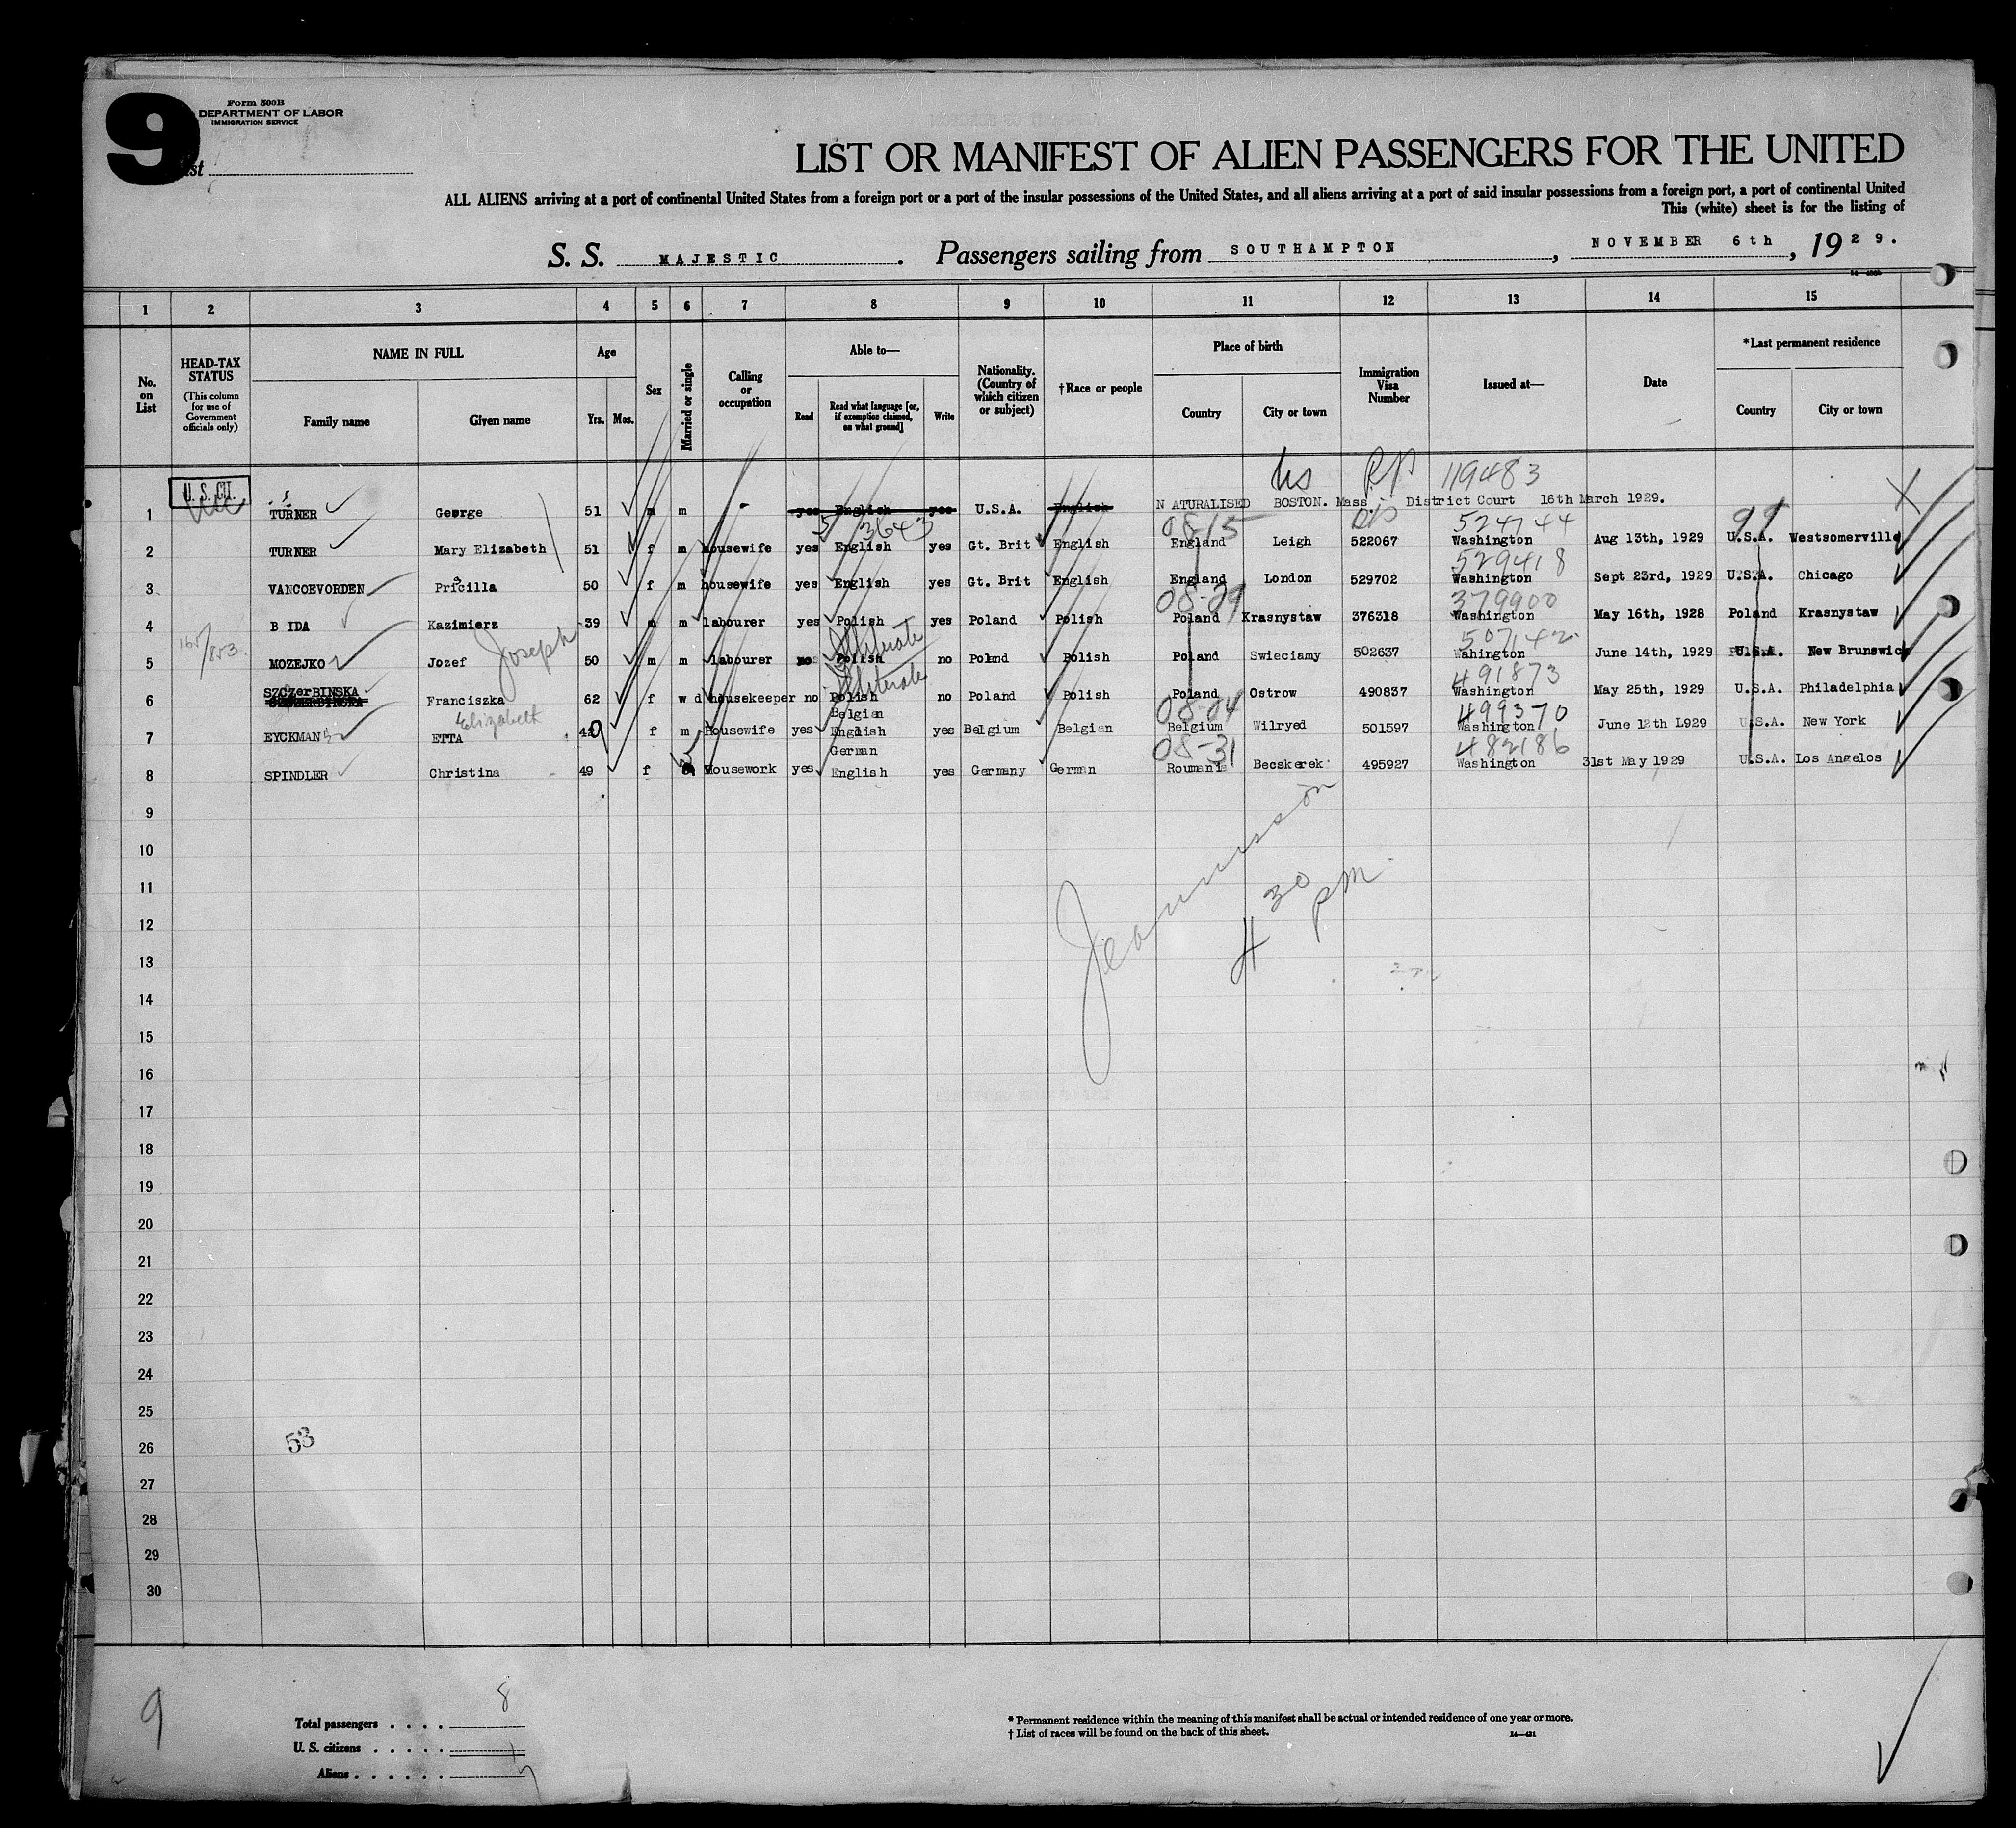 9
Form 500B
DEPARTMENT OF LABOR
IMMIGRATION SERVICE
LIST OR MANIFEST OF ALIEN PASSENGERS FOR THE UNITED
ALL ALIENS arriving at a port of continental United States from a foreign port or a port of the insular possessions of the United States, and all aliens arriving at a port of said insular possessions from a foreign port, a port of continental United
This (white) sheet is for the listing of
S. S. MAJESTIC. Passengers sailing from SOUTHAMPTON, NOVEMBER 6th, 1929.
1 2 3 4 5 6 7 8 9 10 11 12 13 14 15
No. on List
HEAD-TAX STATUS
(This column for use of Government officials only)
NAME IN FULL
Family name Given name
Age
Yrs. Mos.
Sex
Married or single
Calling or occupation
Able to—
Read
Read what language [or, if exemption claimed, on what ground]
Write
Nationality. (Country of which citizen or subject)
†Race or people
Place of birth
Country City or town
Immigration Visa Number
Issued at—
Date
*Last permanent residence
Country City or town
119483
U. S. CIT.
1 TURNER George 51 m m yes English yes U.S.A. English NATURALISED BOSTON. Mass. District Court 16th March 1929.
5 3643 08-15 524744 99
2 TURNER Mary Elizabeth 51 f m housewife yes English yes Gt. Brit English England Leigh 522067 Washington Aug 13th, 1929 U.S.A. Westsomerville
529418
3 VANCOEVORDEN Pricilla 50 f m housewife yes English yes Gt. Brit English England London 529702 Washington Sept 23rd, 1929 U.S.A. Chicago
08-29 379900
4 B IDA Kazimierz 39 m m labourer yes Polish yes Poland Polish Poland Krasnystaw 376318 Washington May 16th, 1928 Poland Krasnystaw
Joseph Illiterate 507142
5 MOZEJKO Jozef 50 m m labourer no Polish no Polend Polish Poland Swieciamy 502637 Wahington June 14th, 1929 U.S.A. New Brunswick
Illiterate 491873
6 SZCZerBINSKA Franciszka 62 f w d housekeeper no Polish no Poland Polish Poland Ostrow 490837 Washington May 25th, 1929 U.S.A. Philadelphia
Elizabeth Belgian 08-04 499370
7 EYCKMANS ETTA 42 f m Housewife yes English yes Belgium Belgian Belgium Wilryed 501597 Washington June 12th L929 U.S.A. New York
German 08-31 482186
8 SPINDLER Christina 49 f S Housework yes English yes Germany German Roumania Becskerek 495927 Washington 31st May 1929 U.S.A. Los Angelos
9
10
11
4 30 pm
12
13
14
15
16
17
18
19
20
21
22
23
24
25
26
53
27
28
29
30
9
Total passengers . . . . 8
U. S. citizens . . . . . 1
Aliens . . . . . . 7
* Permanent residence within the meaning of this manifest shall be actual or intended residence of one year or more.
† List of races will be found on the back of this sheet.